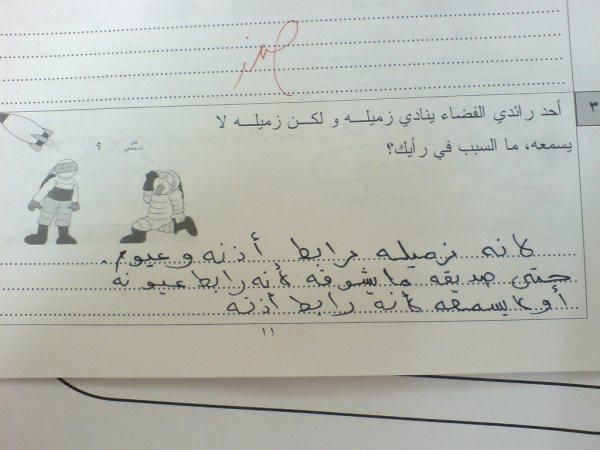 ٣
أحد رائدي الفضاء ينادي زميله و لكن زميله لا
يسمعه، ما السبب في رأيك؟
؟
هل تسمعني
لانه زميله رابط أذنه وعيونه.
حتى صديقه ما يشوفه لأنه رابط عيونه
أو لا يسمعه لأنه رابط أذنه
١١